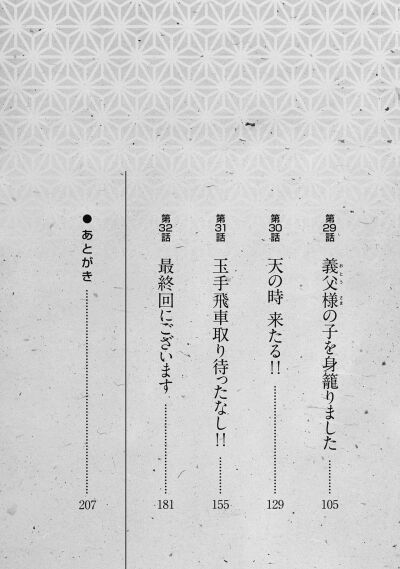 第29話 義父様の子を身籠りました 105
第30話 天の時 来たる!! 129
第31話 玉手飛車取り待ったなし!! 155
第32話 最終回にございます 181
● あとがき 207